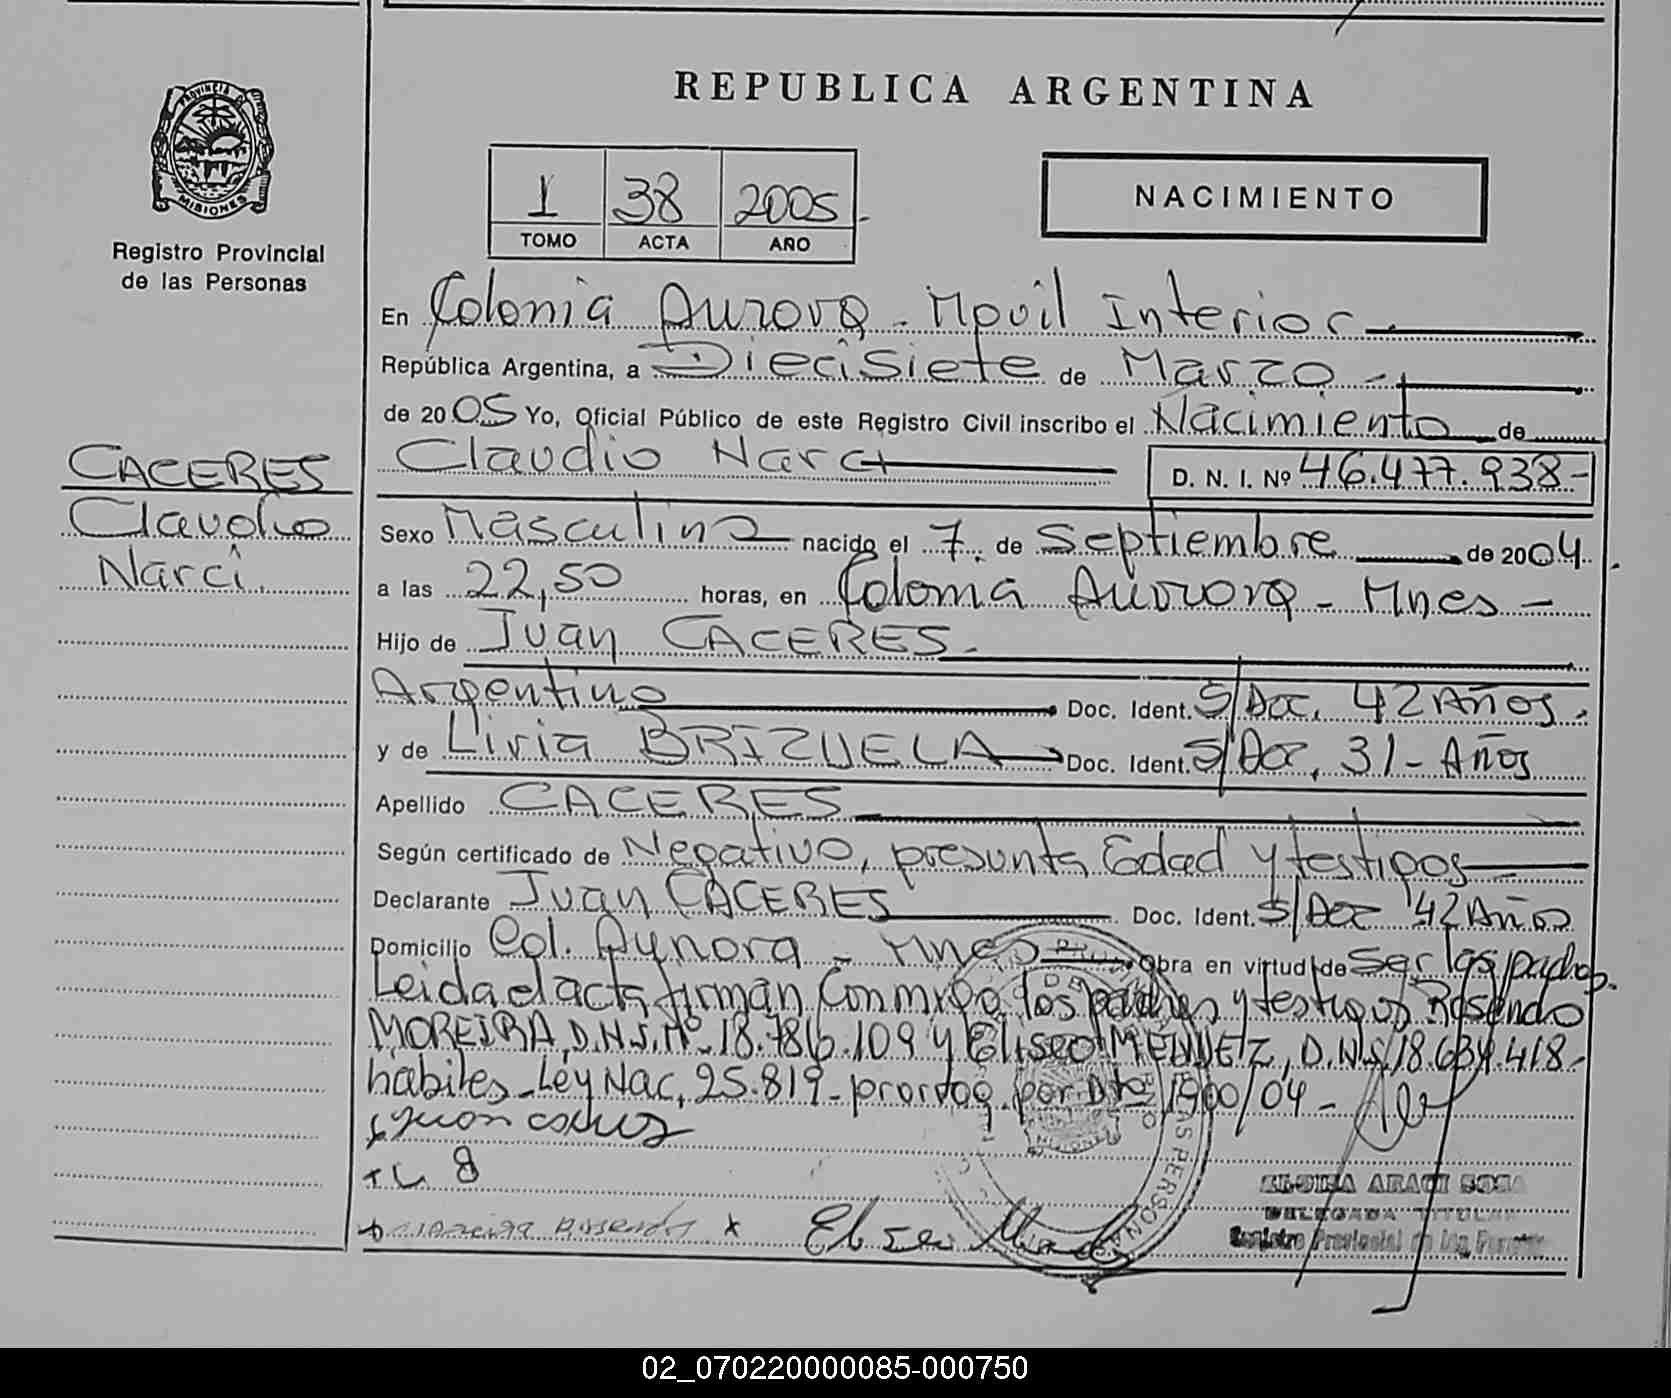 REPUBLICA ARGENTINA
PROVINCIA DE
MISIONES
Registro Provincial
de las Personas
1 38 2005
TOMO ACTA AÑO
NACIMIENTO
En Colonia Aurora - Movil Interior
República Argentina, a Diecisiete de Marzo
de 2005 Yo, Oficial Público de este Registro Civil inscribo el Nacimiento de
Claudio Narci D. N. I. Nº 46.477.938-
CACERES
Claudio
Narci.
Sexo Masculino nacido el 7 de Septiembre de 2004
a las 22,50 horas, en Colonia Aurora - Mnes -
Hijo de Juan CACERES
Argentino Doc. Ident. S/Doc. 42 Años.
y de Liria BRIZUELA Doc. Ident. S/Doc, 31 - Años
Apellido CACERES
Según certificado de Negativo, presunta Edad y testigos
Declarante Juan CACERES Doc. Ident. S/Doc 42 Años
Domicilio Col. Aurora - Mnes Obra en virtud de Ser los padres.
Leida el acta firman Conmigo los padres y testigos Rosendo
MOREIRA, D.N.I. Nº 18.786.109 y Eliseo MENDEZ, D.N.I. 18.634.418-
habiles - Ley Nac. 25.819 - prorrog. por Dto 1900/04 -
ARACI SOSA
DELEGADA TITULAR
Registro Provincial de las Personas
02_070220000085-000750